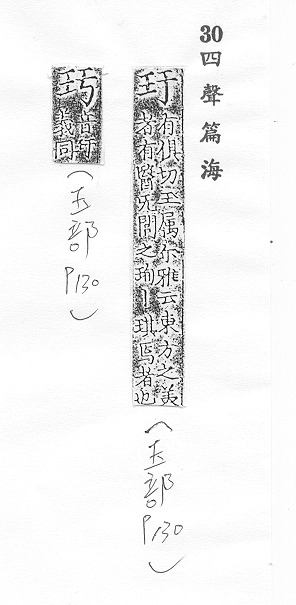 30四聲篇海
玗
有俱切玉属尔雅云東方之美
者有醫无閭之珣丨琪焉者也
(玉部 P130)
音玗
義同
(玉部 P130)